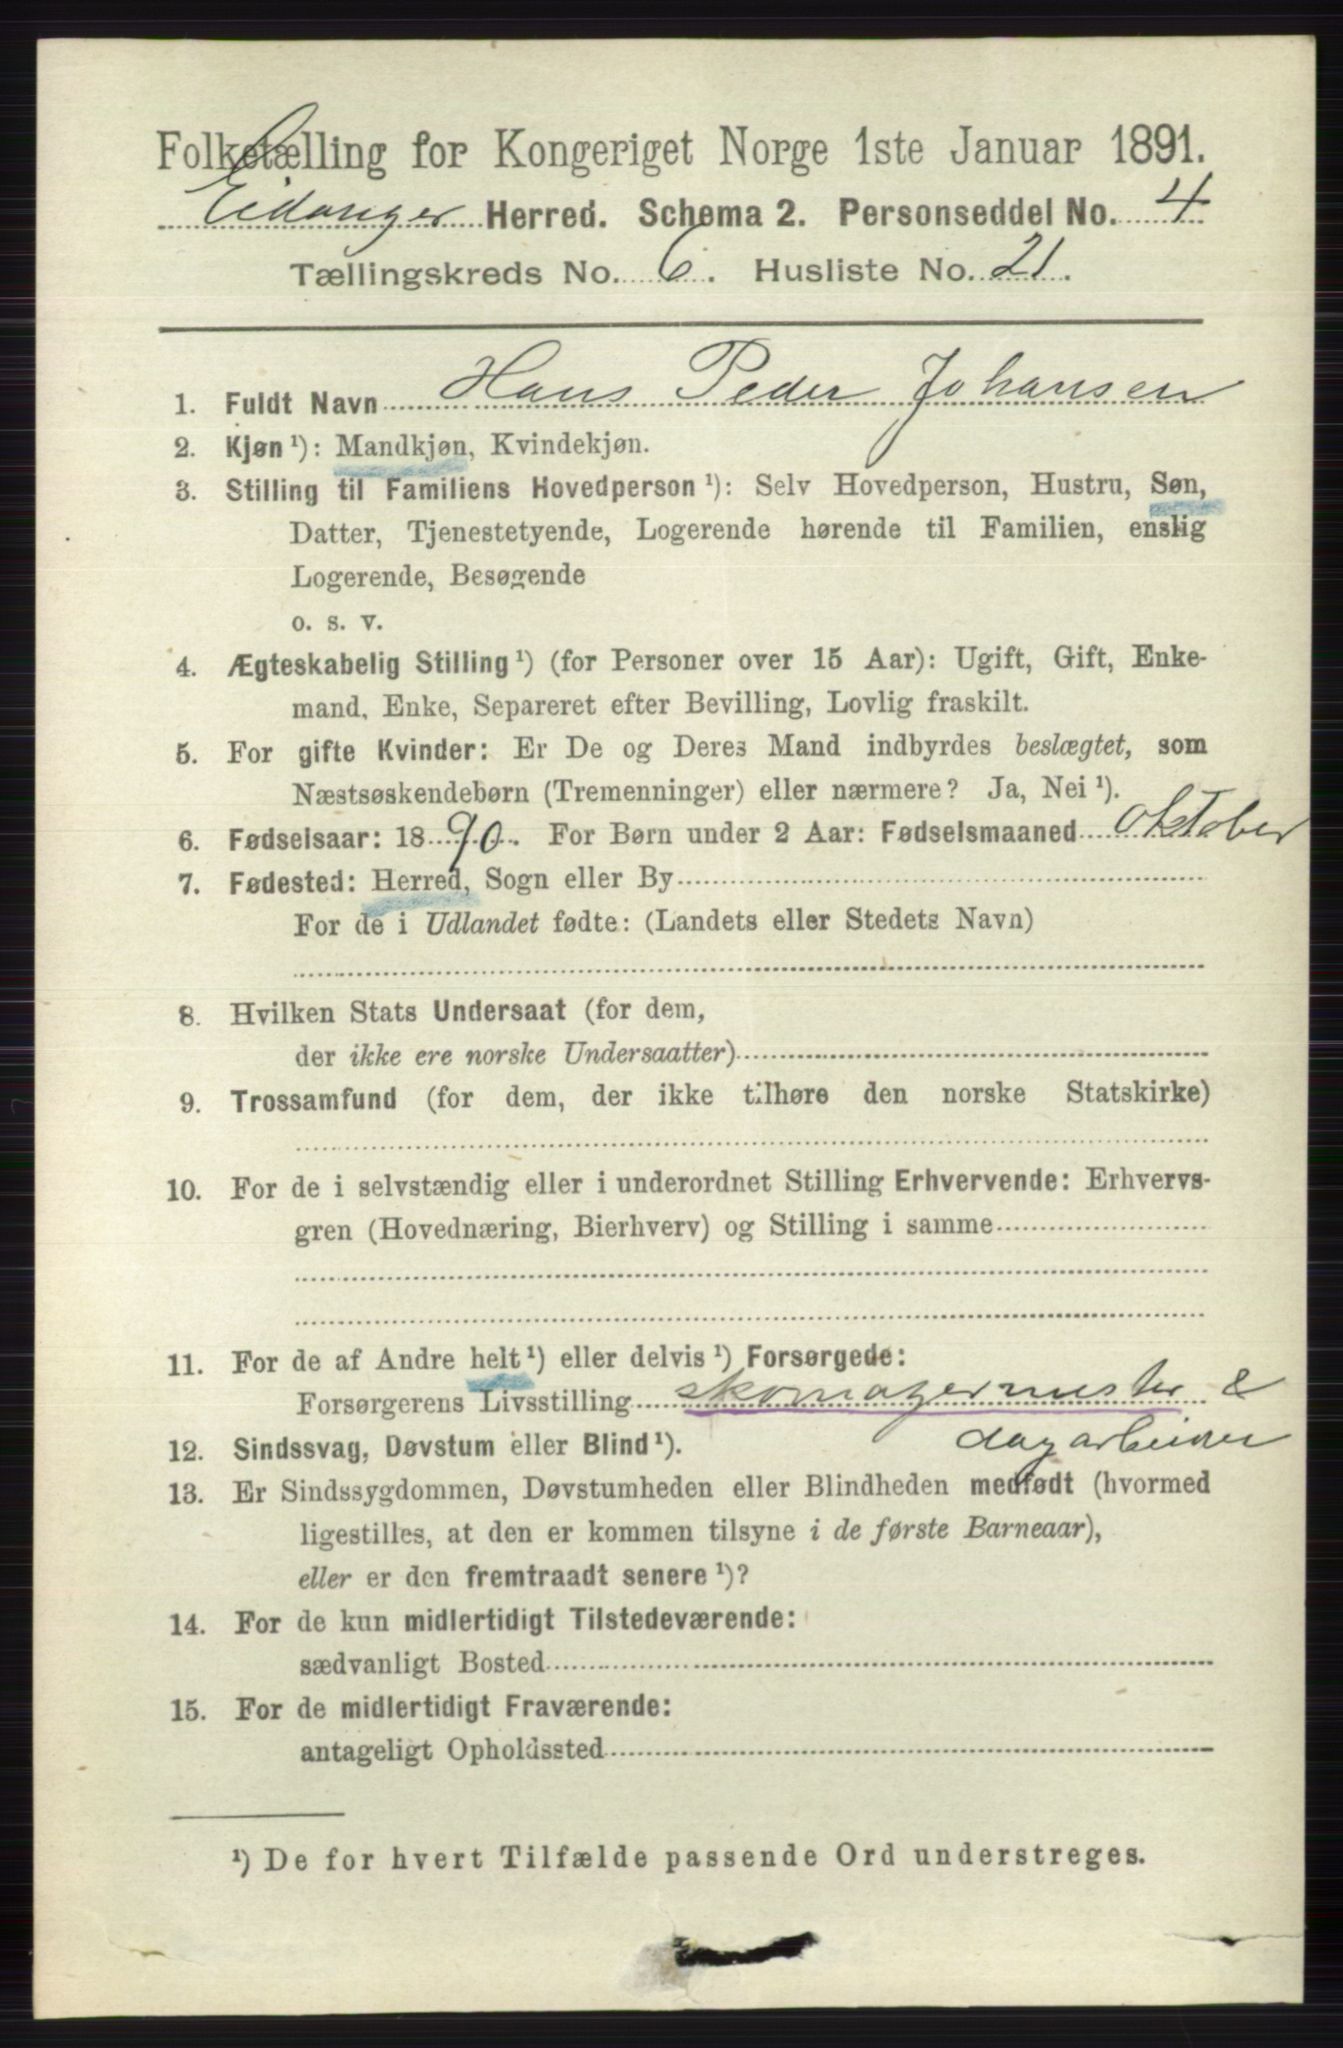 Folketælling for Kongeriget Norge 1ste Januar 1891.
Eidanger Herred. Schema 2. Personseddel No. 4
Tællingskreds No. 6. Husliste No. 21.
1. Fuldt Navn Hans Peder Johansen
2. Kjøn ¹): Mandkjøn, Kvindekjøn.
3. Stilling til Familiens Hovedperson ¹): Selv Hovedperson, Hustru, Søn,
Datter, Tjenestetyende, Logerende hørende til Familien, enslig
Logerende, Besøgende
o. s. v.
4. Ægteskabelig Stilling ¹) (for Personer over 15 Aar): Ugift, Gift, Enke-
mand, Enke, Separeret efter Bevilling, Lovlig fraskilt.
5. For gifte Kvinder: Er De og Deres Mand indbyrdes beslægtet, som
Næstsøskendebørn (Tremenninger) eller nærmere? Ja, Nei ¹).
6. Fødselsaar: 1890. For Børn under 2 Aar: Fødselsmaaned oktober
7. Fødested: Herred, Sogn eller By
For de i Udlandet fødte: (Landets eller Stedets Navn)
8. Hvilken Stats Undersaat (for dem,
der ikke ere norske Undersaatter)
9. Trossamfund (for dem, der ikke tilhøre den norske Statskirke)
10. For de i selvstændig eller i underordnet Stilling Erhvervende: Erhvervs-
gren (Hovednæring, Bierhverv) og Stilling i samme
11. For de af Andre helt ¹) eller delvis ¹) Forsørgede:
Forsørgerens Livsstilling skomagermester &
dagarbeider
12. Sindssvag, Døvstum eller Blind ¹).
13. Er Sindssygdommen, Døvstumheden eller Blindheden medfødt (hvormed
ligestilles, at den er kommen tilsyne i de første Barneaar),
eller er den fremtraadt senere ¹)?
14. For de kun midlertidigt Tilstedeværende:
sædvanligt Bosted
15. For de midlertidigt Fraværende:
antageligt Opholdssted
¹) De for hvert Tilfælde passende Ord understreges.